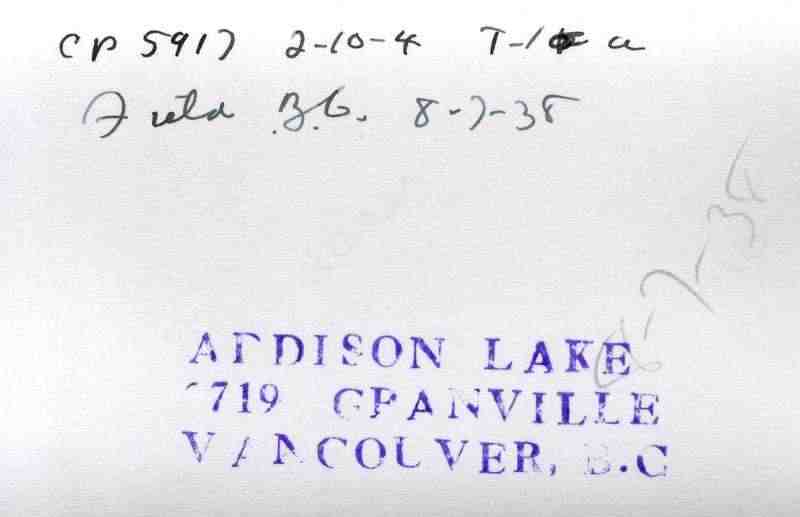 CP 5917 2-10-4 T-1 a
Field B.C. 8-7-38
8-7-38
ADDISON LAKE
719 GRANVILLE
VANCOUVER, B.C